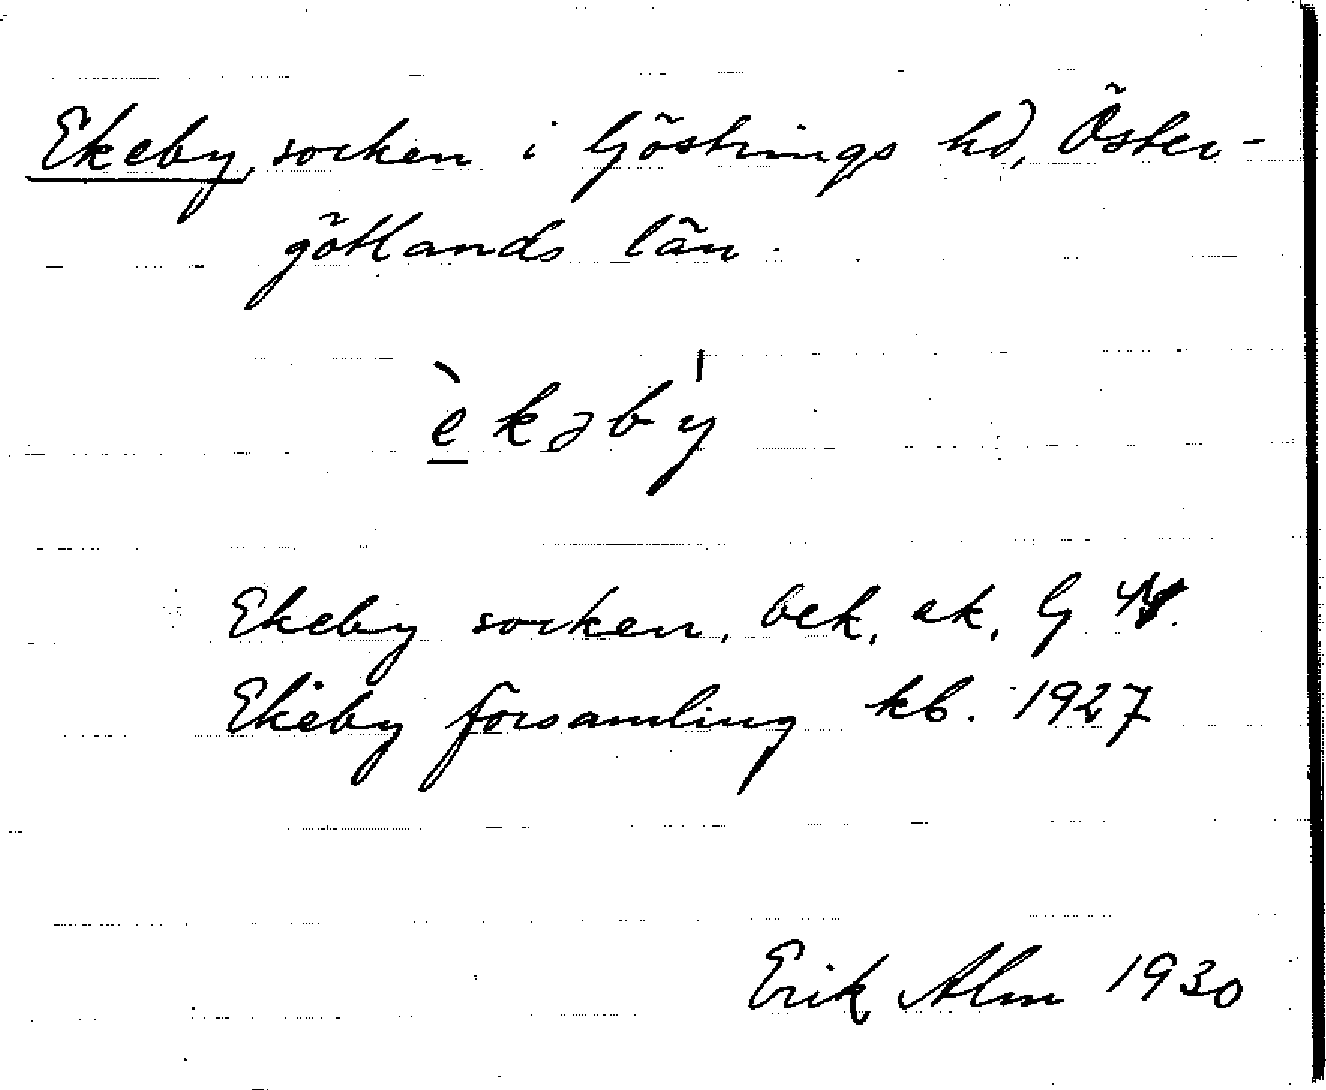 Ekeby, socken i Göstrings hd, Öster-
götlands län.
èkəbý
Ekeby socken, bek. ek. G
Ekeby församling kb. 1927
Erik Alm 1930